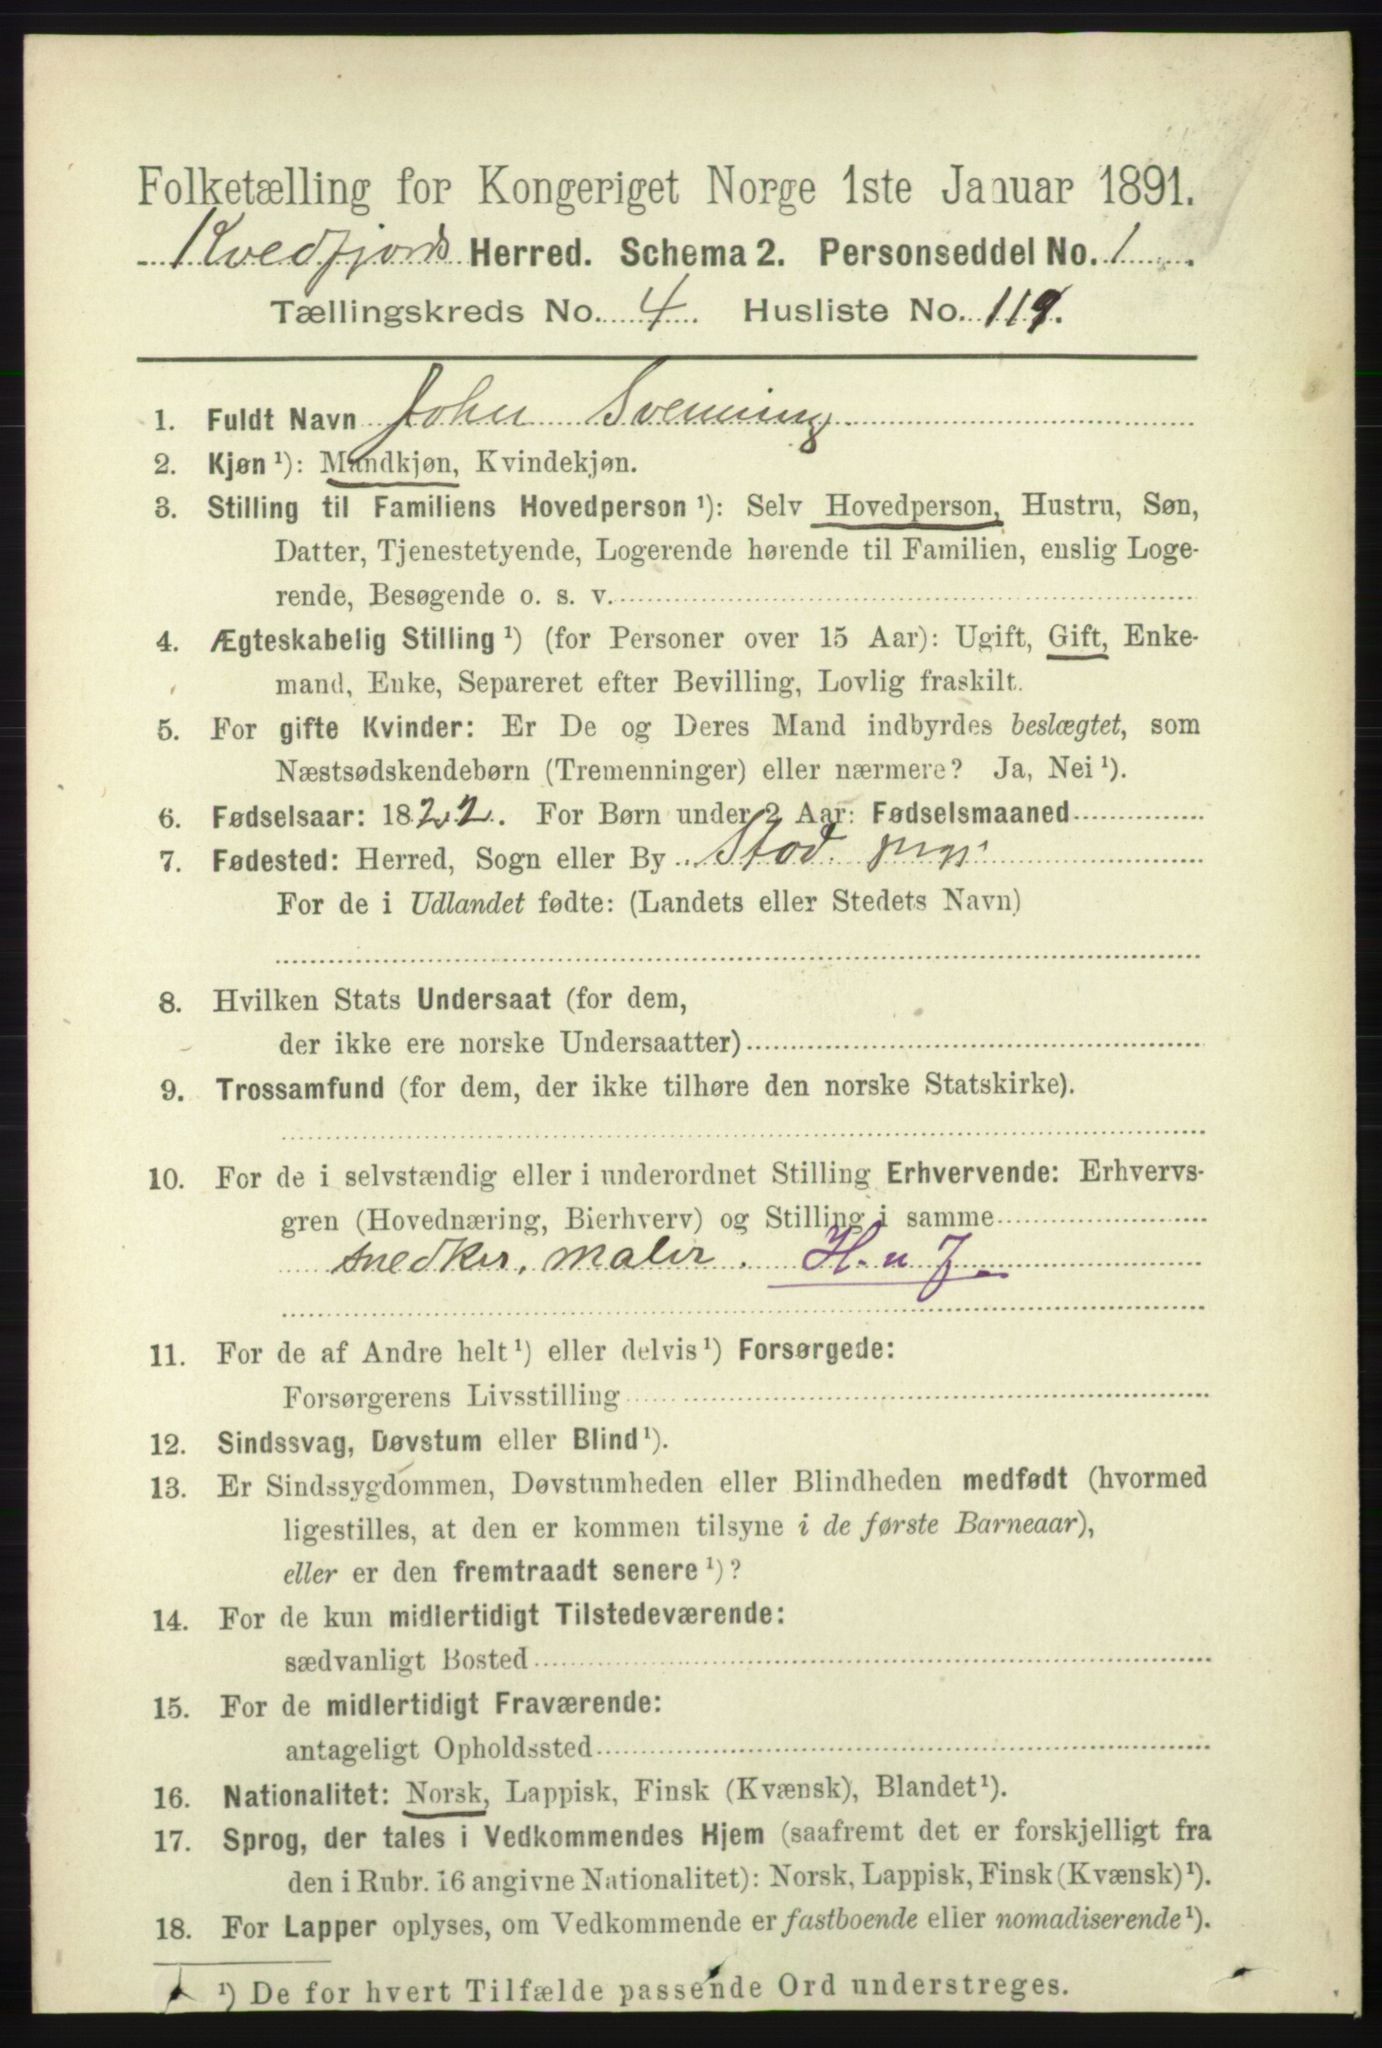 Folketælling for Kongeriget Norge 1ste Januar 1891.
Kvedfjords Herred. Schema 2. Personseddel No. 1
Tællingskreds No. 4. Husliste No. 119.
1. Fuldt Navn John Svenning
2. Kjøn ¹): Mandkjøn, Kvindekjøn.
3. Stilling til Familiens Hovedperson ¹): Selv Hovedperson, Hustru, Søn,
Datter, Tjenestetyende, Logerende hørende til Familien, enslig Loge-
rende, Besøgende o. s. v.
4. Ægteskabelig Stilling ¹) (for Personer over 15 Aar): Ugift, Gift, Enke-
mand, Enke, Separeret efter Bevilling, Lovlig fraskilt.
5. For gifte Kvinder: Er De og Deres Mand indbyrdes beslægtet, som
Næstsødskendebørn (Tremenninger) eller nærmere? Ja, Nei ¹).
6. Fødselsaar: 1822. For Børn under 2 Aar: Fødselsmaaned
7. Fødested: Herred, Sogn eller By Stod
For de i Udlandet fødte: (Landets eller Stedets Navn)
8. Hvilken Stats Undersaat (for dem,
der ikke ere norske Undersaatter)
9. Trossamfund (for dem, der ikke tilhøre den norske Statskirke).
10. For de i selvstændig eller i underordnet Stilling Erhvervende: Erhvervs-
gren (Hovednæring, Bierhverv) og Stilling i samme
snedker, maler. H. u J
11. For de af Andre helt ¹) eller delvis ¹) Forsørgede:
Forsørgerens Livsstilling
12. Sindssvag, Døvstum eller Blind ¹).
13. Er Sindssygdommen, Døvstumheden eller Blindheden medfødt (hvormed
ligestilles, at den er kommen tilsyne i de første Barneaar),
eller er den fremtraadt senere ¹)?
14. For de kun midlertidigt Tilstedeværende:
sædvanligt Bosted
15. For de midlertidigt Fraværende:
antageligt Opholdssted
16. Nationalitet: Norsk, Lappisk, Finsk (Kvænsk), Blandet ¹).
17. Sprog, der tales i Vedkommendes Hjem (saafremt det er forskjelligt fra
den i Rubr. 16 angivne Nationalitet): Norsk, Lappisk, Finsk (Kvænsk) ¹).
18. For Lapper oplyses, om Vedkommende er fastboende eller nomadiserende ¹).
¹) De for hvert Tilfælde passende Ord understreges.